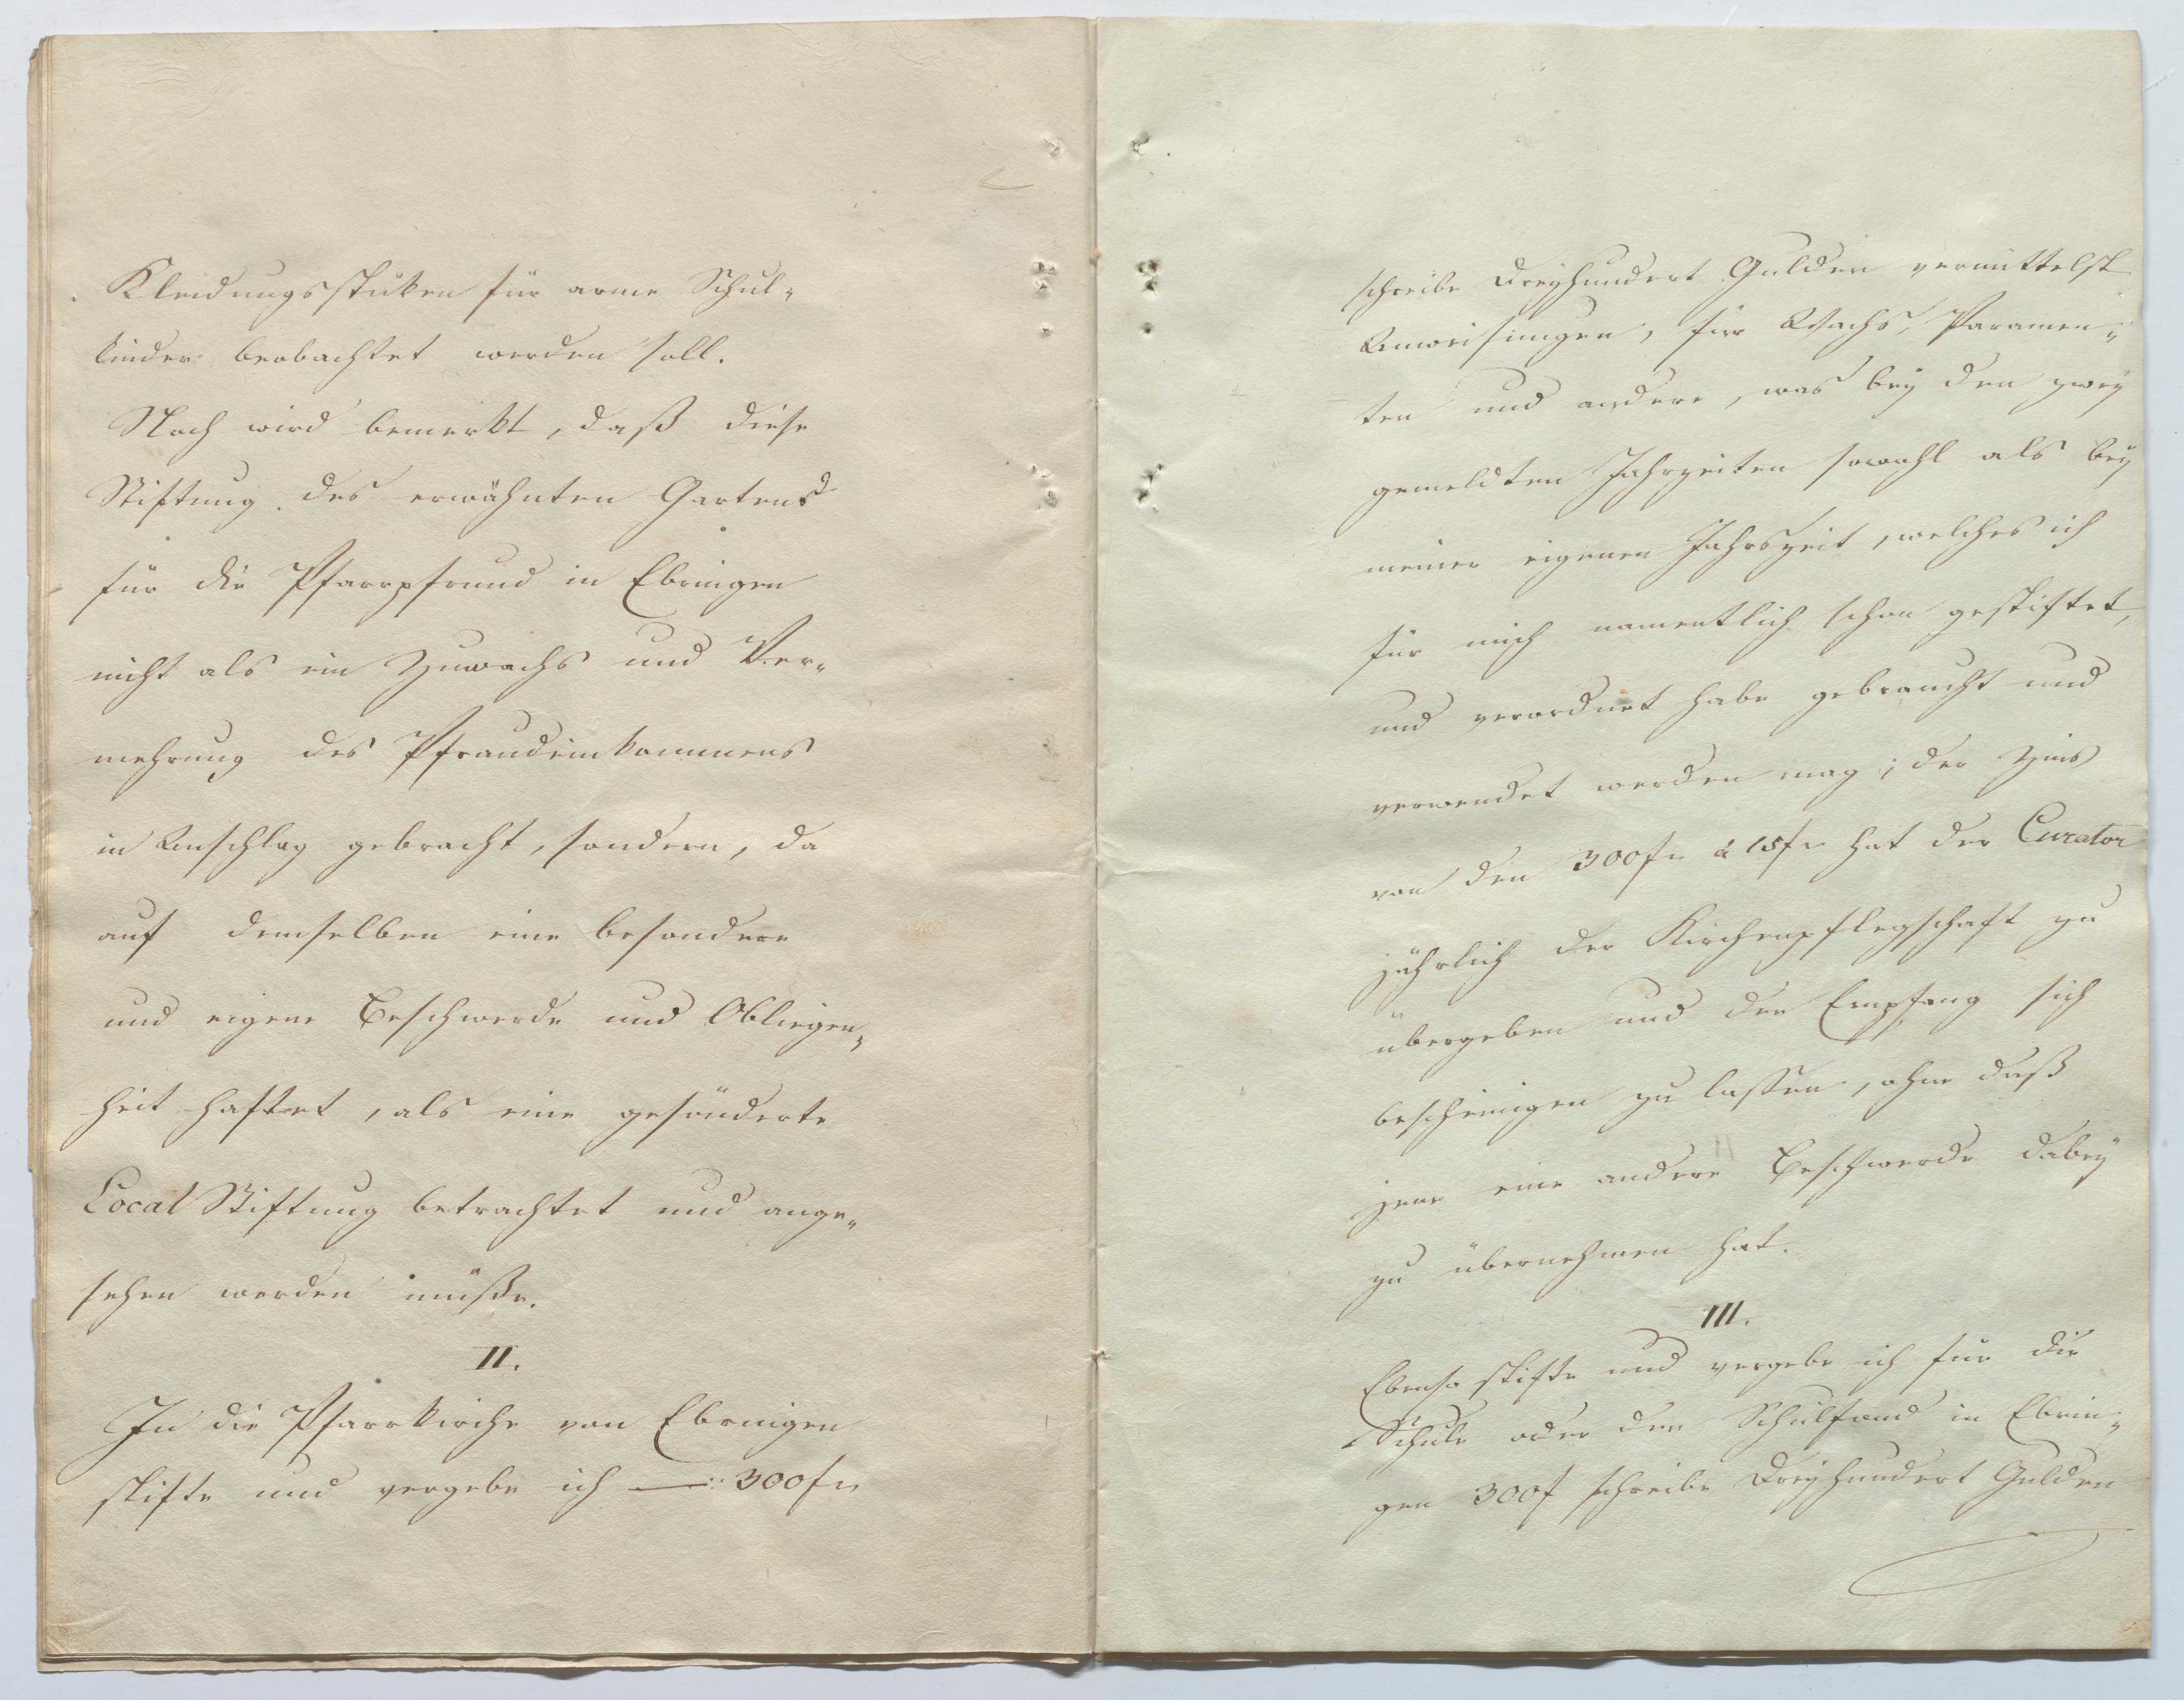 Kleidungsstüken für arme Schul-
kinder beobachtet werden soll.
Noch wird bemerkt, daß diese
Stiftung des erwähnten Gartens
für die Pfarrpfrund in Ebringen
nicht als ein Zuwachs und Ver-
mehrung des Pfrundeinkommens
in Anschlag gebracht, sondern, da
auf demselben eine besondere
und eigene Beschwerde und Obliegen-
heit haftet, als eine gesönderte
Local Stiftung betrachtet und ange-
sehen werden müße.
II.
In die Pfarrkirche von Ebringen
stifte und vergebe ich —: 300 fr
schreibe Dreyhundert Gulden vermittelst
Anweisungen, für Wachs, Paramen-
ten und andere, was bey den zwey
gemeldten Jahrzeiten sowohl als bey
meiner eigenen Jahrszeit, welches ich
für mich namentlich schon gestiftet,
und verordnet habe gebraucht und
verwendet werden mag; der Zins
von den 300 fr à 15 fr hat der Curator
jährlich der Kirchenpflegschaft zu
übergeben und den Empfang sich
bescheinigen zu lassen, ohne daß
jene eine andere Beschwerde dabey
zu übernehmen hat.
III.
Ebenso stifte und vergebe ich für die
Schule oder den Schulfond in Ebrin-
gen 300 f schreibe Dreyhundert Gulden